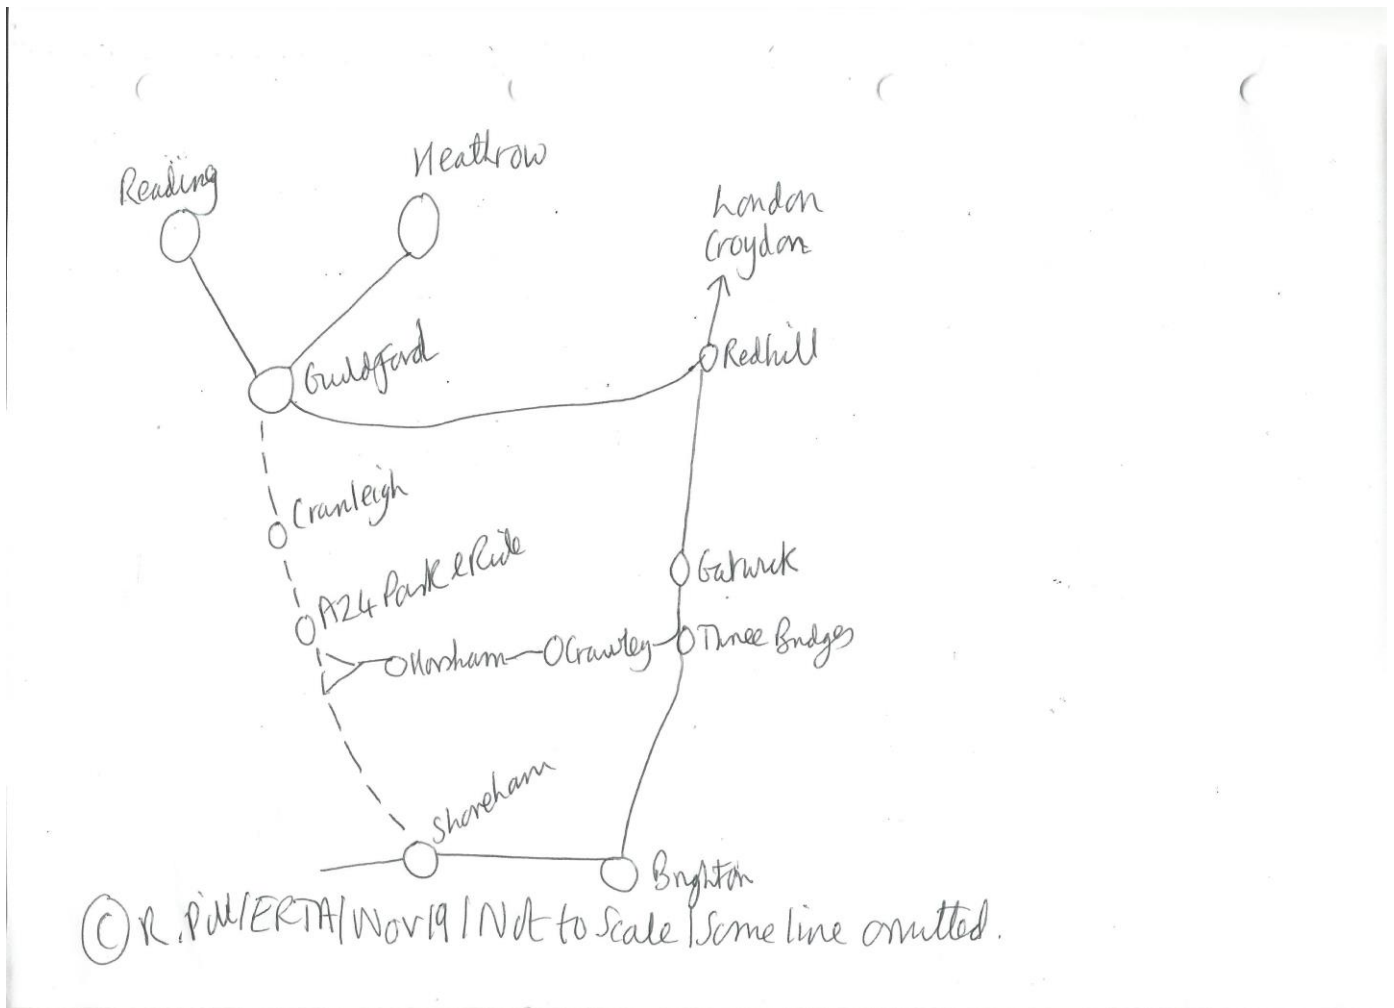 Heathrow
Reading
London
Croydon
Redhill
Guildford
Cranleigh
A24 Park & Ride
Gatwick
Horsham
Crawley
Three Bridges
Shoreham
Brighton
© R. Pill/ERTA/Nov19/Not to Scale/Some line omitted.